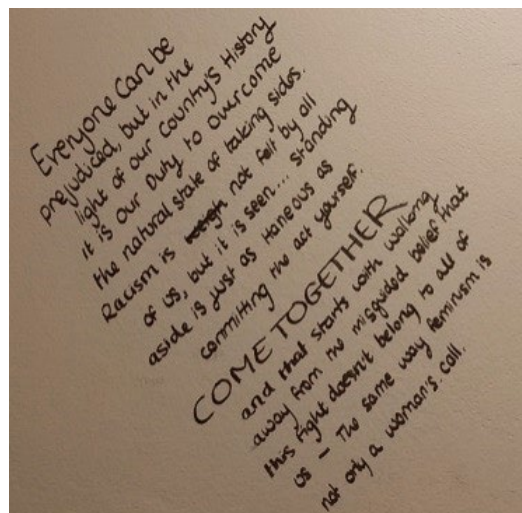 Everyone can be
prejudiced, but in the
light of our country's History
it is our Duty to overcome
the natural state of taking sides.
Racism is not felt by all
of us, but it is seen... standing
aside is just as Haneous as
committing the act yourself.
COME TOGETHER
and that starts with walking
away from the misguided belief that
this fight doesn't belong to all of
us - The same way feminism is
not only a woman's call.